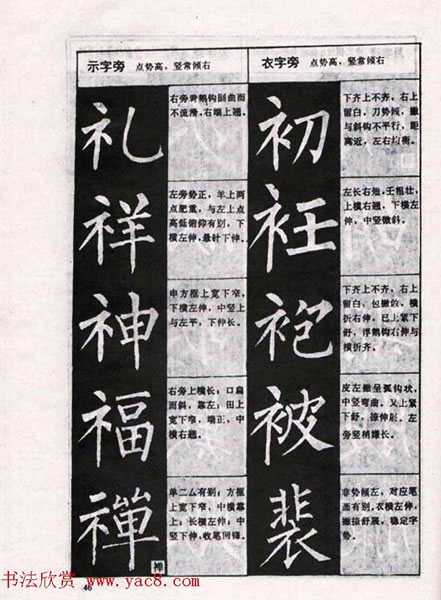 示字旁 点势高，竖常倾右
衣字旁 点势高，竖常倾右
礼
右旁背鹅钩圆曲而
不流滑，右端上翘。
初
下齐上不齐，右上
留白，刀势倾，撇
与斜钩不平行，距
离近，左右均衡。
祥
左旁势正，羊上两
点肥重，与左上点
高低俯仰有别，下
横左伸，悬针下伸。
衽
左长右短，壬粗壮，
上横右翘，下横左
伸，中竖微斜。
神
申方框上宽下窄，
下横左伸，中竖上
与左平，下伸长。
袍
下齐上不齐，右上
留白，包撇敛，横
折右伸，巳上紧下
舒，浮鹅钩右伸与
横折齐。
福
右旁上横长；口扁
而斜，靠左；田上
宽下窄，端正，中
横右翘。
被
皮左撇呈弧钩状，
中竖弯曲，又上紧
下舒，捺伸展，左
旁竖稍嫌长。
禪
单二厶有别；方框
上宽下窄，中横靠
上；长横左伸；中
竖下伸，收笔回锋。
禅
裴
非势倾左，对应笔
画有别，衣横左伸，
撇捺舒展，稳定字
势。
书法欣赏 www.yac8.com
46